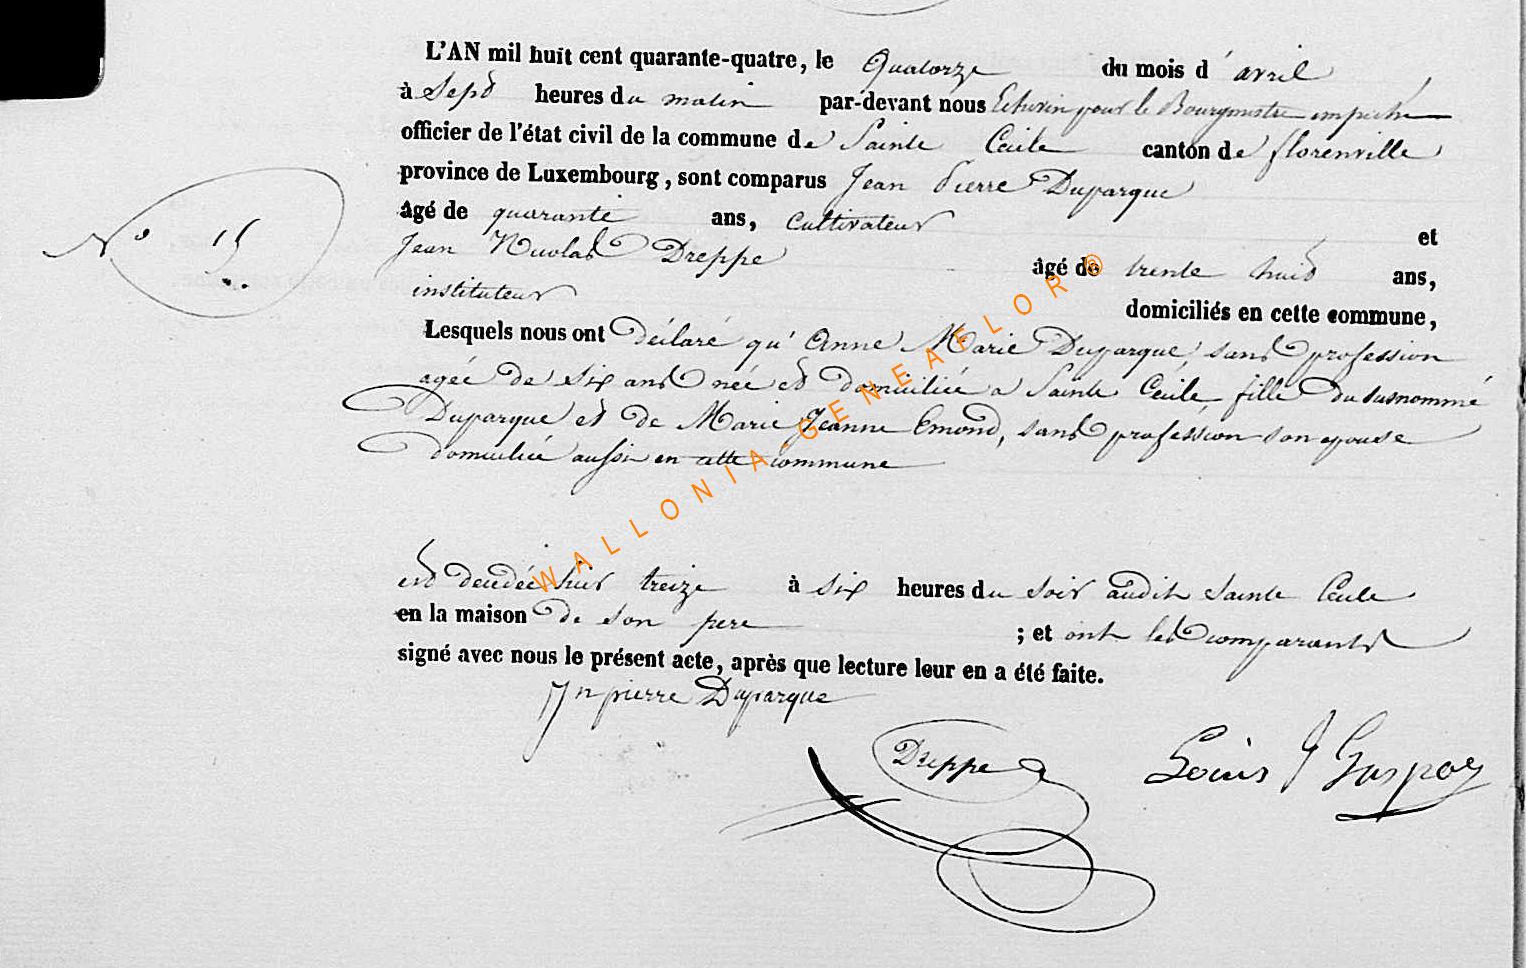 L'AN mil huit cent quarante-quatre, le Quatorze du mois d'avril
à Sept heures du matin par-devant nous Echevin pour le Bourgmestre empêché
officier de l'état civil de la commune de Sainte Cecile canton de florenville
province de Luxembourg, sont comparus Jean Pierre Duparque
âgé de quarante ans, cultivateur et
Jean Nicolas Dreppe âgé de trente huit ans,
instituteur domiciliés en cette commune,
Lesquels nous ont déclaré qu'Anne Marie Duparque, sans profession
agée de six ans née et domiciliée a Sainte Cécile, fille du susnommé
Duparque et de Marie Jeanne Emond, sans profession son epouse
domiciliée aussi en cette commune
N° 15
est decedée hier treize à six heures du soir audit Sainte Cecile
en la maison de son pere ; et ont les comparants
signé avec nous le présent acte, après que lecture leur en a été faite.
Jn pierre Duparque
Dreppe Louis J Gaspar
WALLONIA-GENEAFLOR®